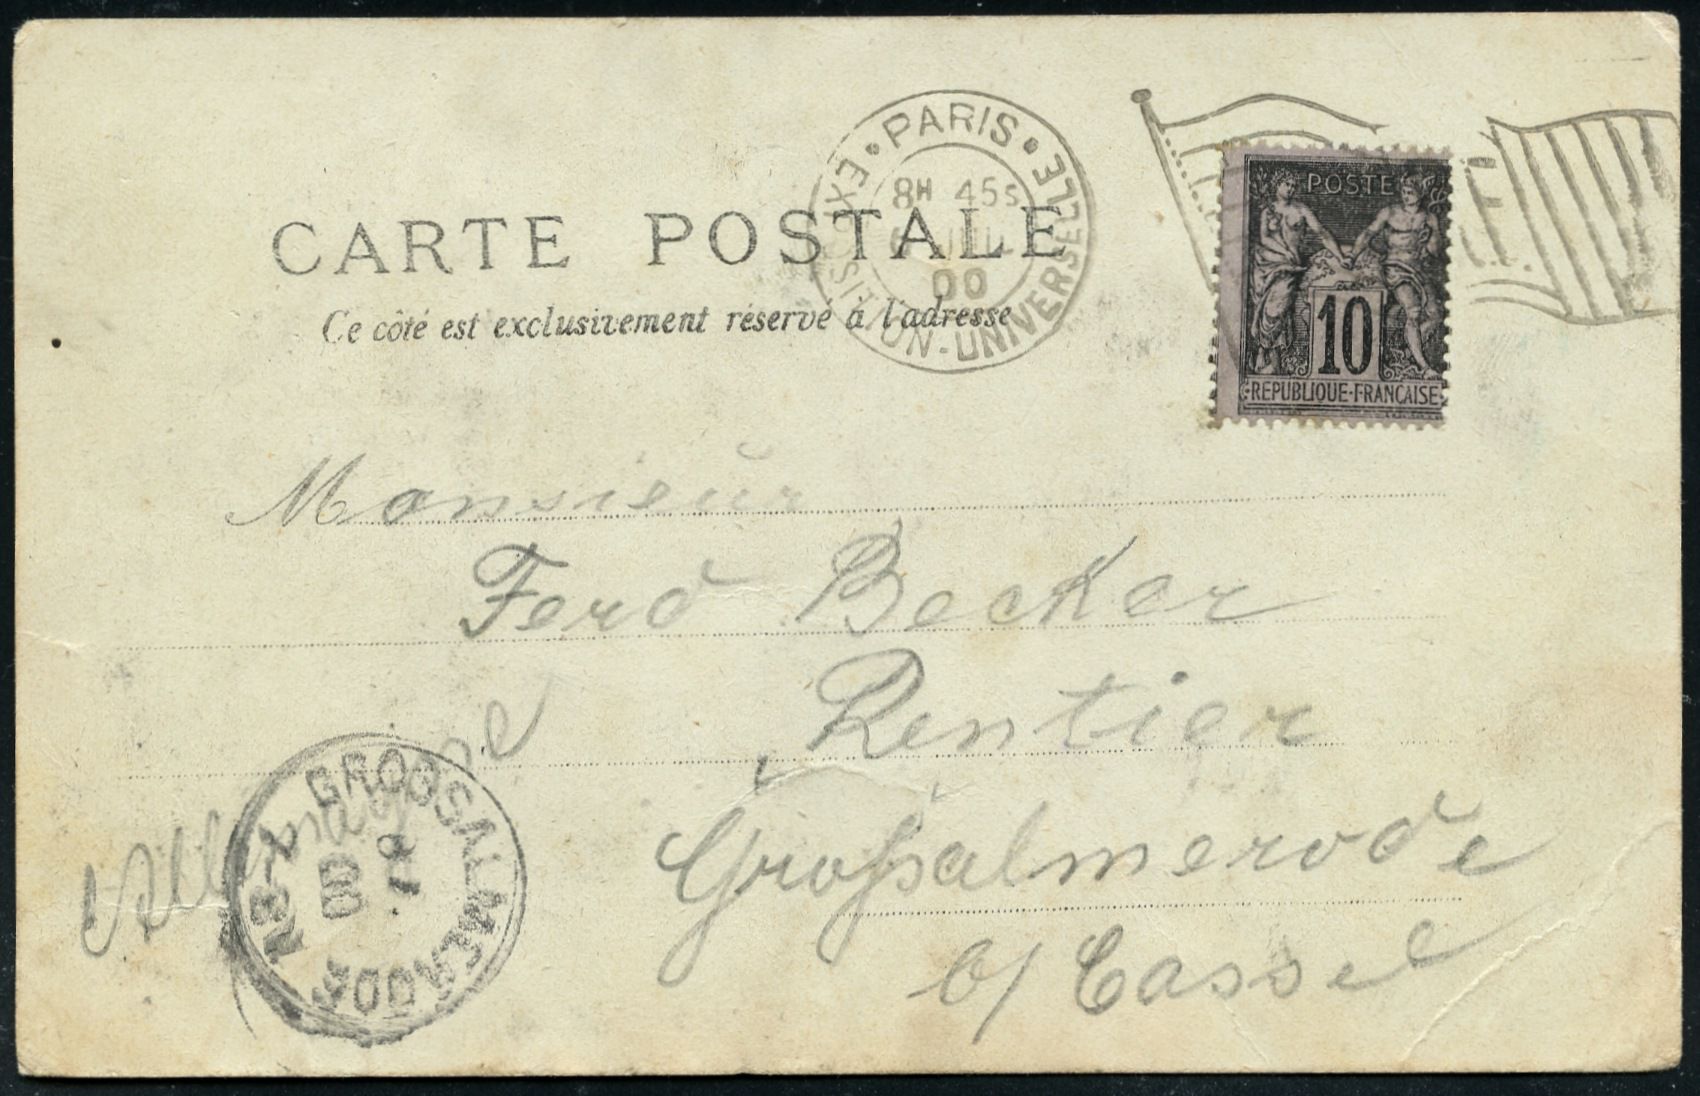 PARIS
EXPOSITION-UNIVERSELLE
8H 45S
6 JUIL
00
CARTE POSTALE
Ce côté est exclusivement réservé à l'adresse
POSTE
10
REPUBLIQUE-FRANCAISE
Monsieur
Ferd Becker
Rentier
Großalmerode
b/ Cassel
Allemagne
GROSSALMERODE
00